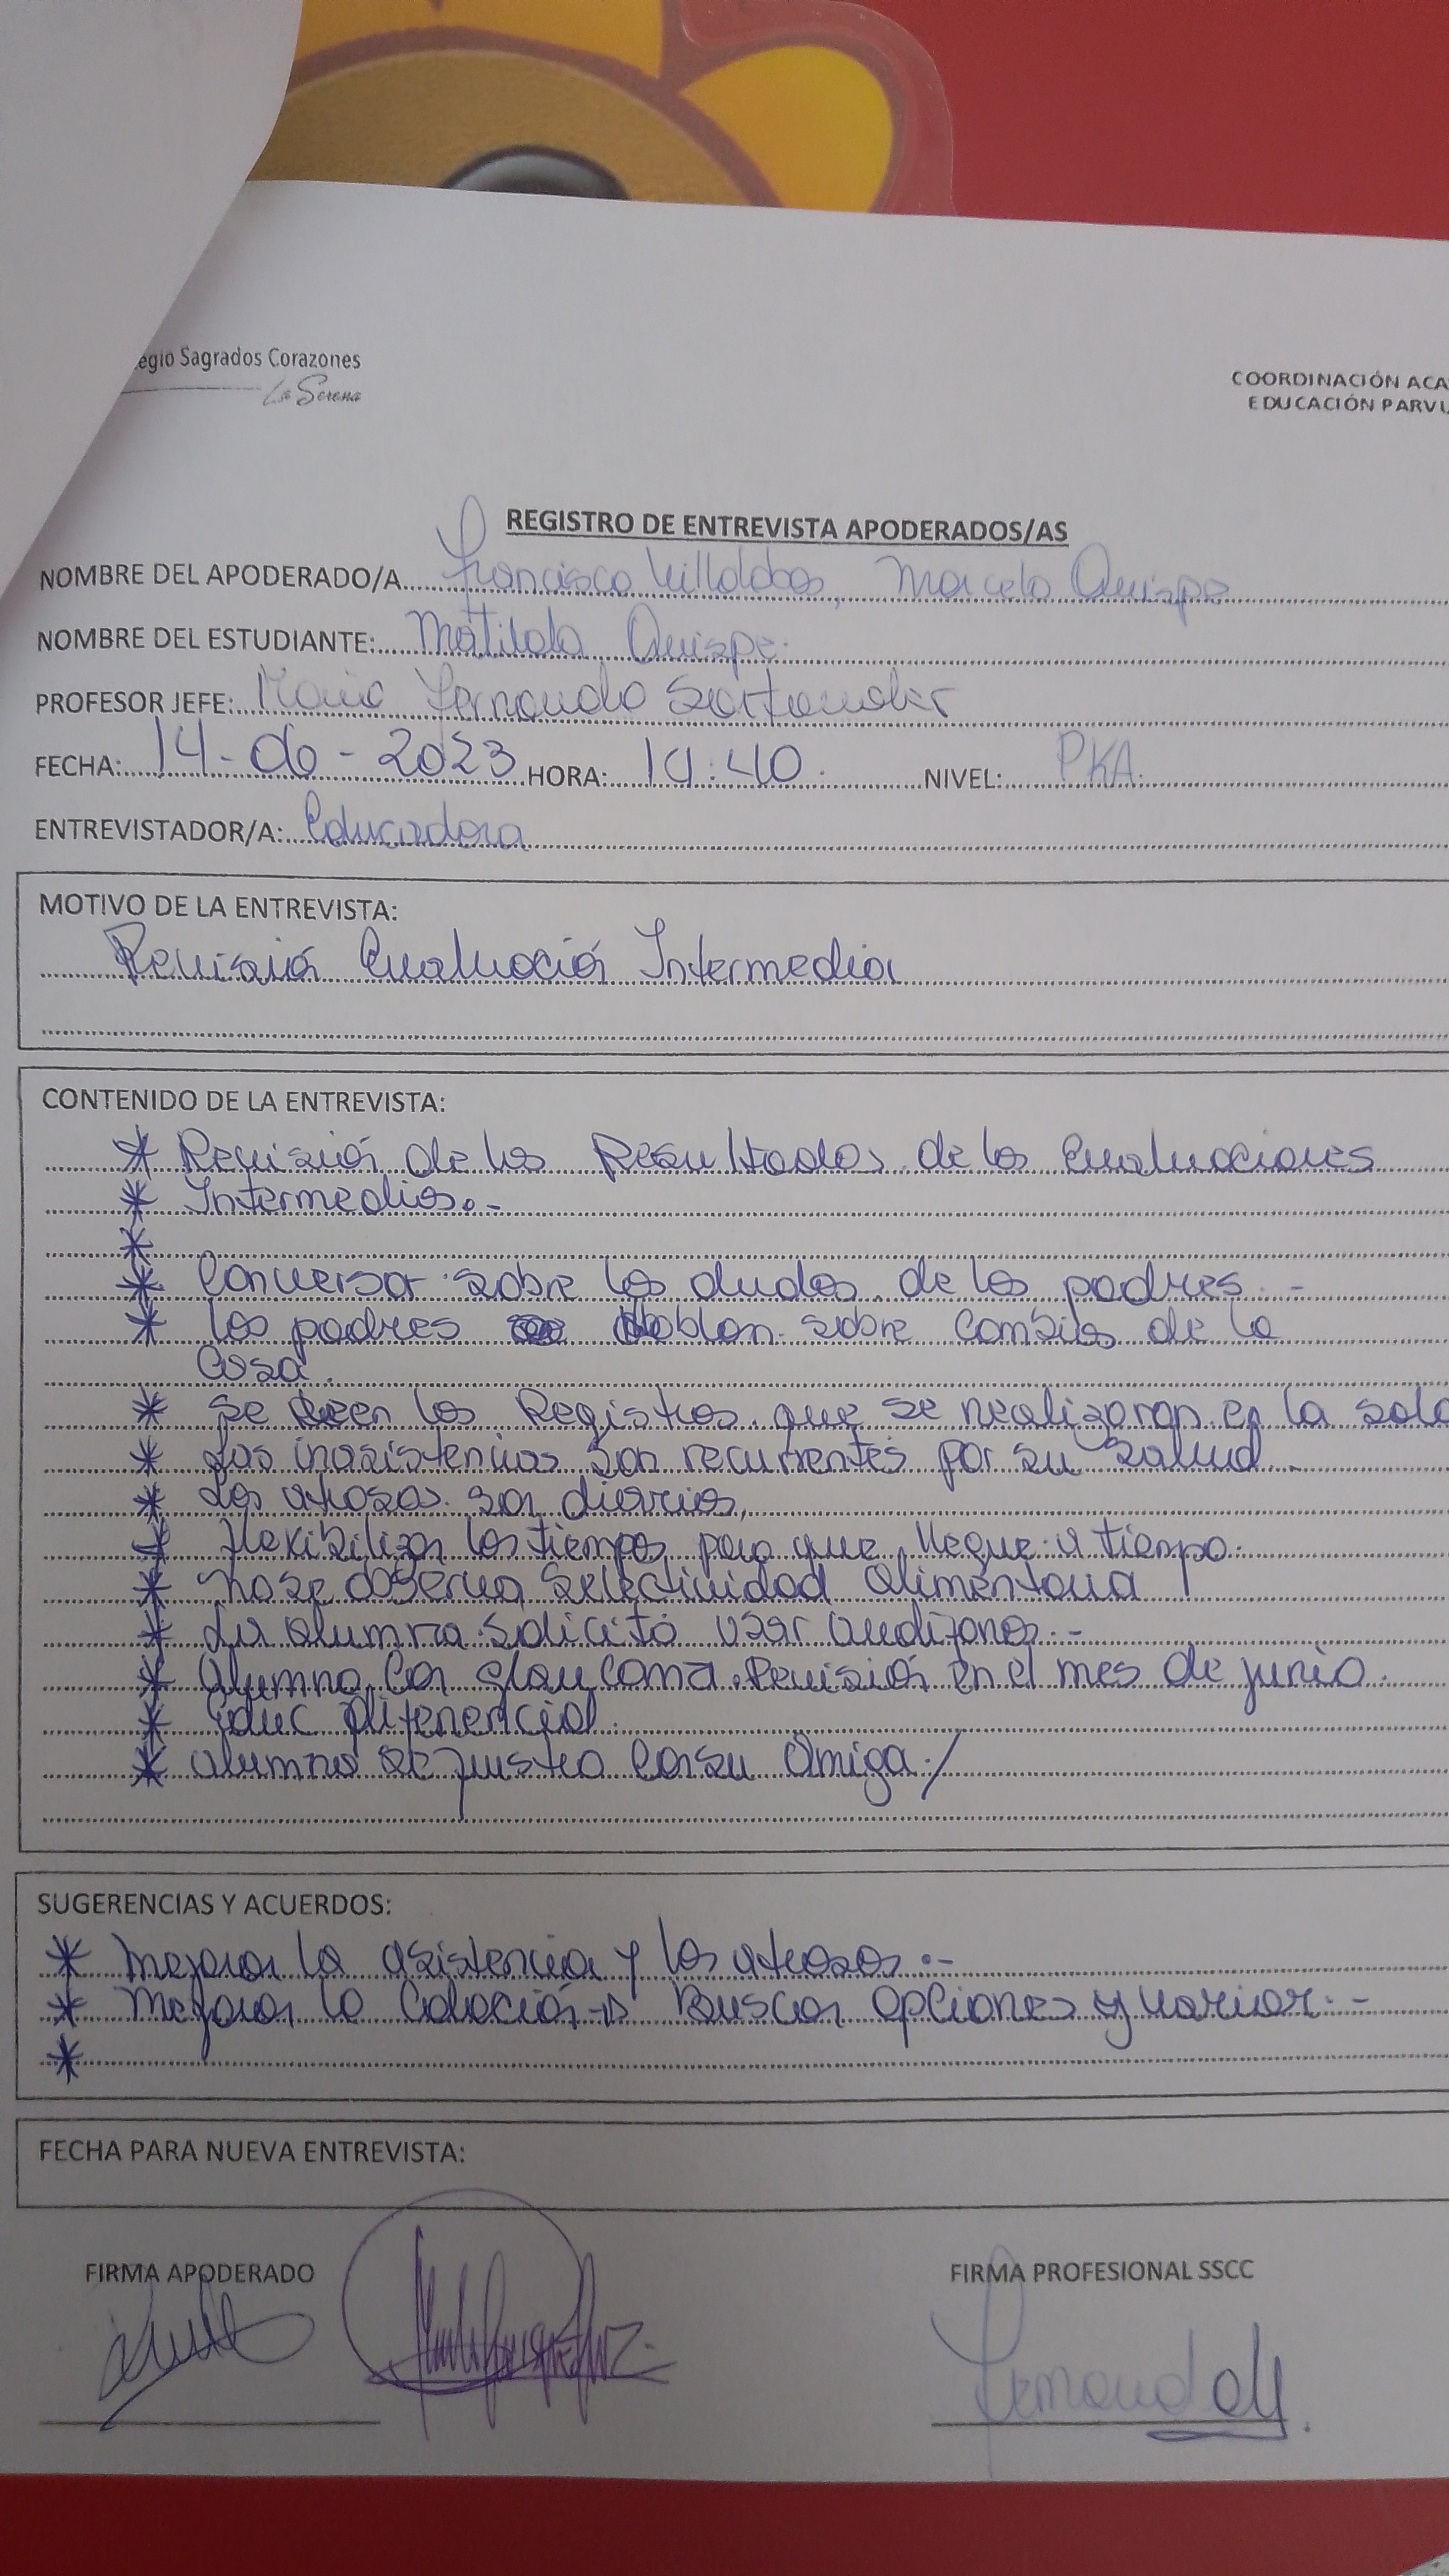 egio Sagrados Corazones
La Serena
COORDINACIÓN ACA
EDUCACIÓN PARVU
REGISTRO DE ENTREVISTA APODERADOS/AS
NOMBRE DEL APODERADO/A Francisco Villalobos, Marcelo Quispe
NOMBRE DEL ESTUDIANTE: Matilda Quispe.
PROFESOR JEFE: Maria Fernanda
FECHA: 14-06-2023 HORA: :40 NIVEL: PKA.
ENTREVISTADOR/A: Educadora
MOTIVO DE LA ENTREVISTA:
Revisión Evaluación Intermedia
CONTENIDO DE LA ENTREVISTA:
* Revisión de los Resultados de las Evaluaciones
* Intermedias.-
*
* Conversar sobre las dudas de los padres.-
* Los padres hablan sobre cambios de la
casa.
* Se leen los Registros que se realizaron en la sala
* Las inasistencias son recurrentes por su salud.
* Los atrasos son diarios.
* Flexibilizar los tiempos para que llegue a tiempo.
* No se observa selectividad alimentaria
* La alumna solicitó usar audífonos.-
* Alumna con glaucoma. Revisión en el mes de junio.
* Educ diferencial.
* Alumna se con su amiga./
SUGERENCIAS Y ACUERDOS:
* Mejorar la asistencia y los atrasos.-
* Mejorar la Colación → Buscar opciones y variar.-
*
FECHA PARA NUEVA ENTREVISTA:
FIRMA APODERADO
FIRMA PROFESIONAL SSCC